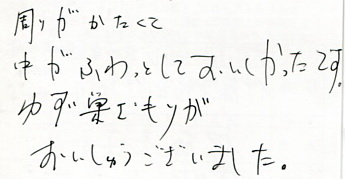 周りがかたくて
中がふわっとしておいしかったです。
ゆず巣ごもりが
おいしゅうございました。